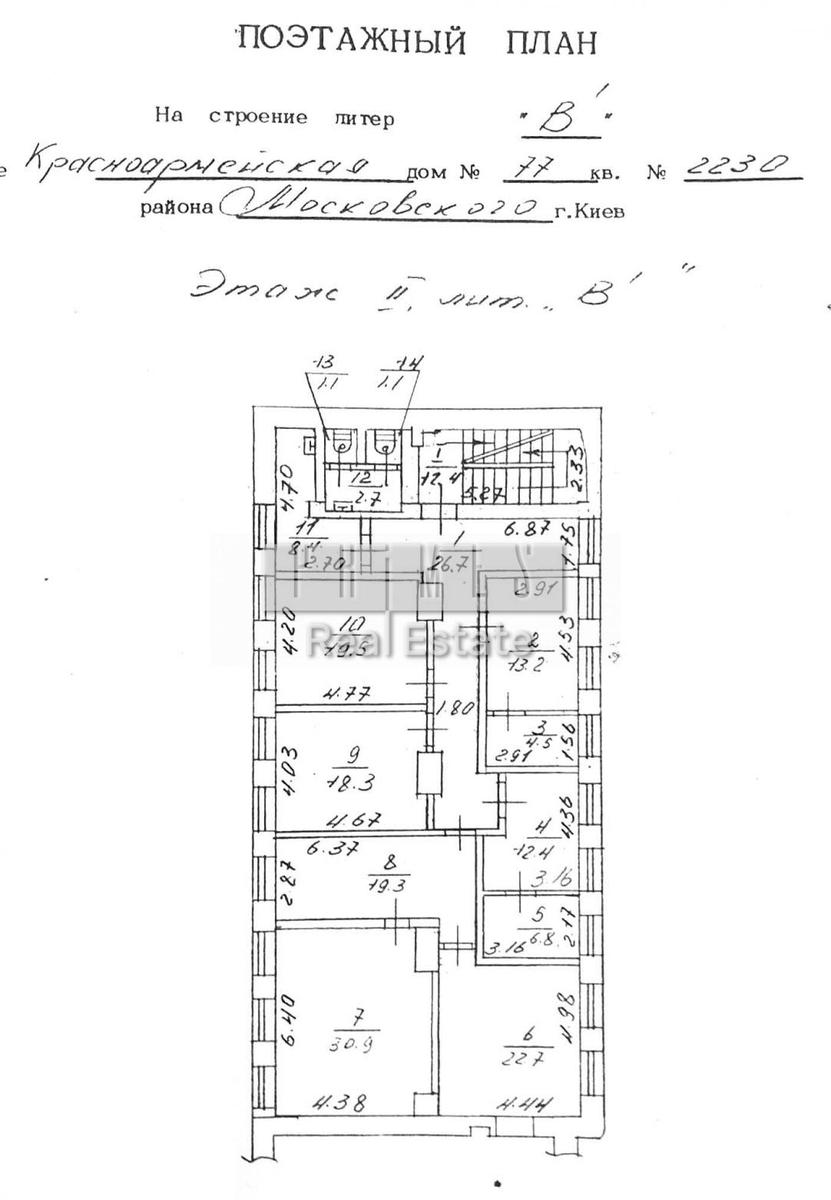 ПОЭТАЖНЫЙ ПЛАН
На строение литер "В'"
е Красноармейская дом № 77 кв. № 2230
района Московского г.Киев
Этаж II, лит. „В' "
13 14
1.1 1.1
I
12.4
12
2.7
4.70
5.27
2.33
11
8.4
2.70
1
26.7
6.87
1.75
2.91
Real Estate
10
19.5
4.20
4.77
2
13.2
4.53
1.80
3
4.5
2.91
1.56
9
18.3
4.03
4.67
4
12.4
4.36
3.16
6.37
8
19.3
2.87
5
6.8
3.16
2.17
7
30.9
6.40
4.38
6
22.7
4.98
4.44